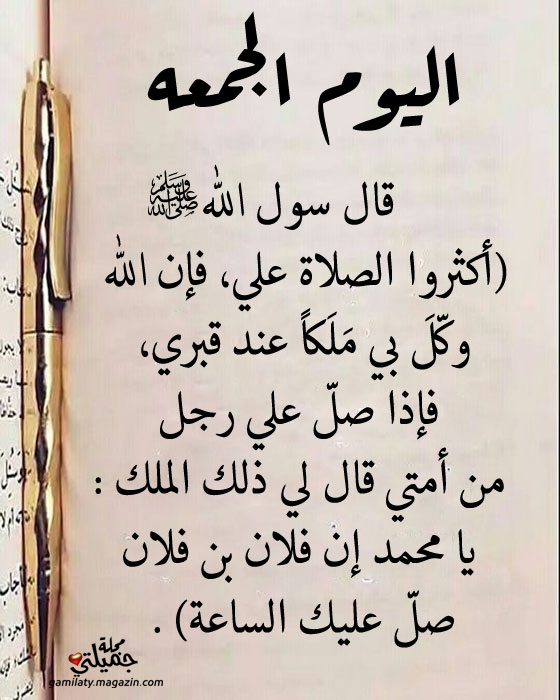 اليوم الجمعه
قال سول الله ﷺ
(أكثروا الصلاة علي، فإن الله
وكّلَ بي مَلَكاً عند قبري،
فإذا صلّ علي رجل
من أمتي قال لي ذلك الملك :
يا محمد إن فلان بن فلان
صلّ عليك الساعة) .
مجلة
جميلتي
gamilaty.magazin.com